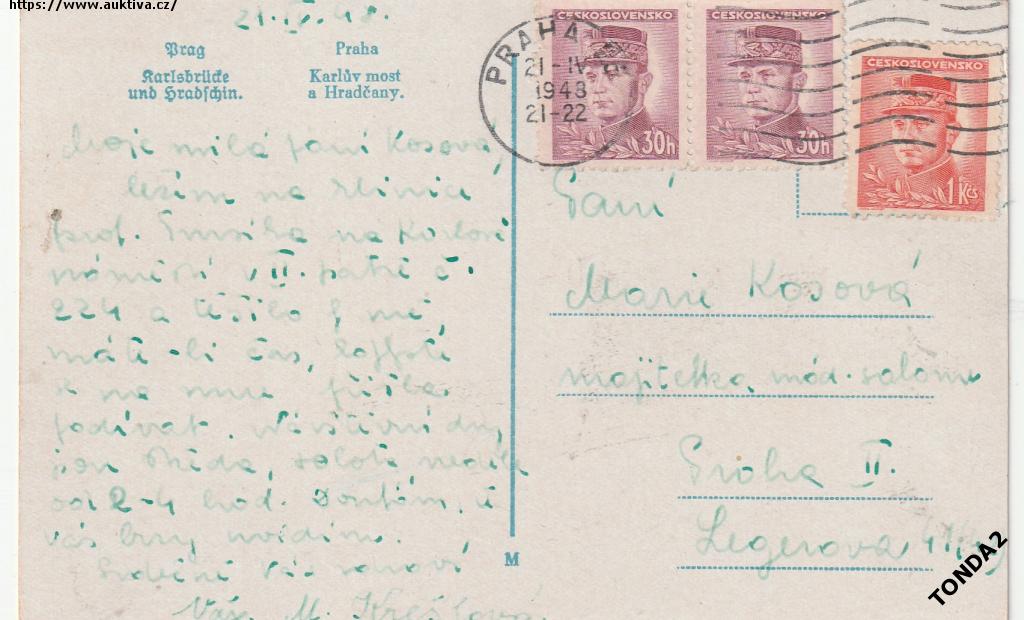 https://www.auktiva.cz/
21.IV.48.
Prag
Karlsbrücke
und Hradschin.
Praha
Karlův most
a Hradčany.
Moje milá paní Kosová,
ležím na klinice
prof. na Karlově
náměstí v II. patře č.
224 a těšilo by mě,
máte-li čas,
se na mne přišla
podívat. Návštěvní dny
jsou středa, sobota, neděle
od 2-4 hod. Doufám, i
vás brzy uvidím.
Srdečně Vás zdraví
Vaše M.
PRAHA
21-IV
1948
21-22
ČESKOSLOVENSKO
30h
ČESKOSLOVENSKO
30h
ČESKOSLOVENSKO
1 Kčs
Paní
Marie Kosová
majitelka mód. salonu
Praha II.
Legerova
M
TONDA2